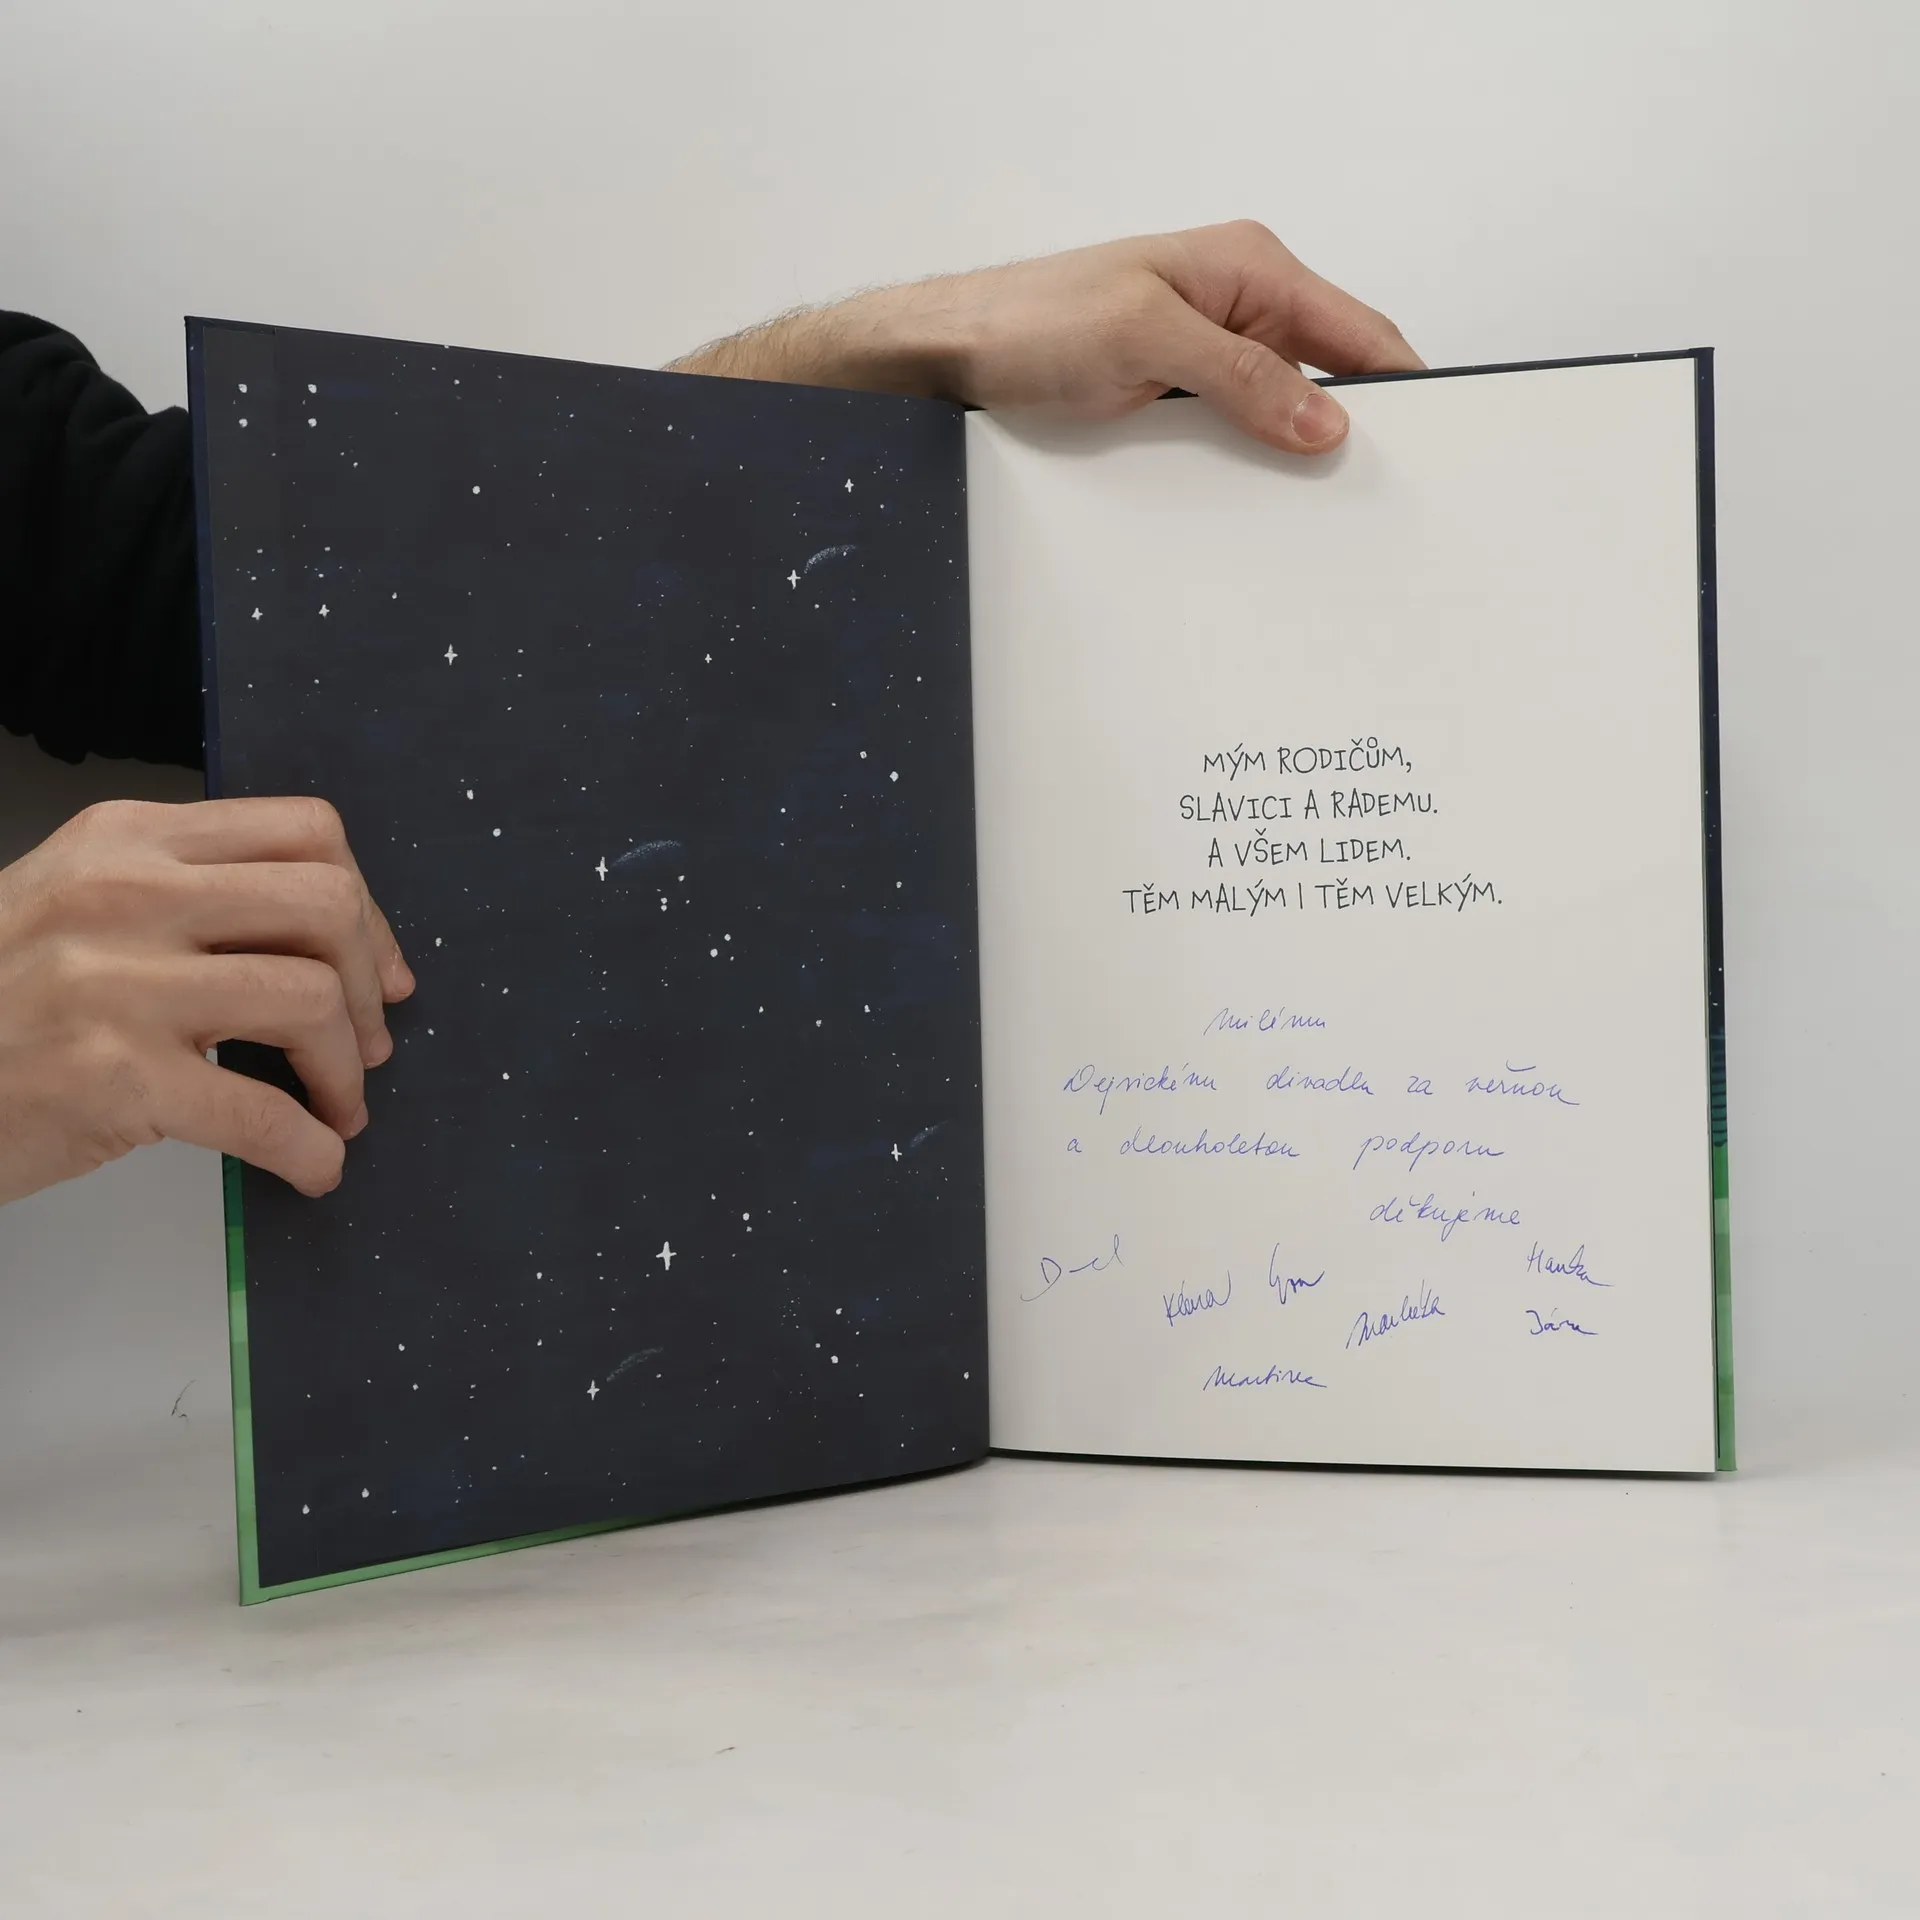 MÝM RODIČŮM,
SLAVICI A RADEMU.
A VŠEM LIDEM.
TĚM MALÝM I TĚM VELKÝM.
Milému
Dejvickému divadlu za věrnou
a dlouholetou podporu
děkujeme
Hanka
Klára
Markéta
Jára
Martina